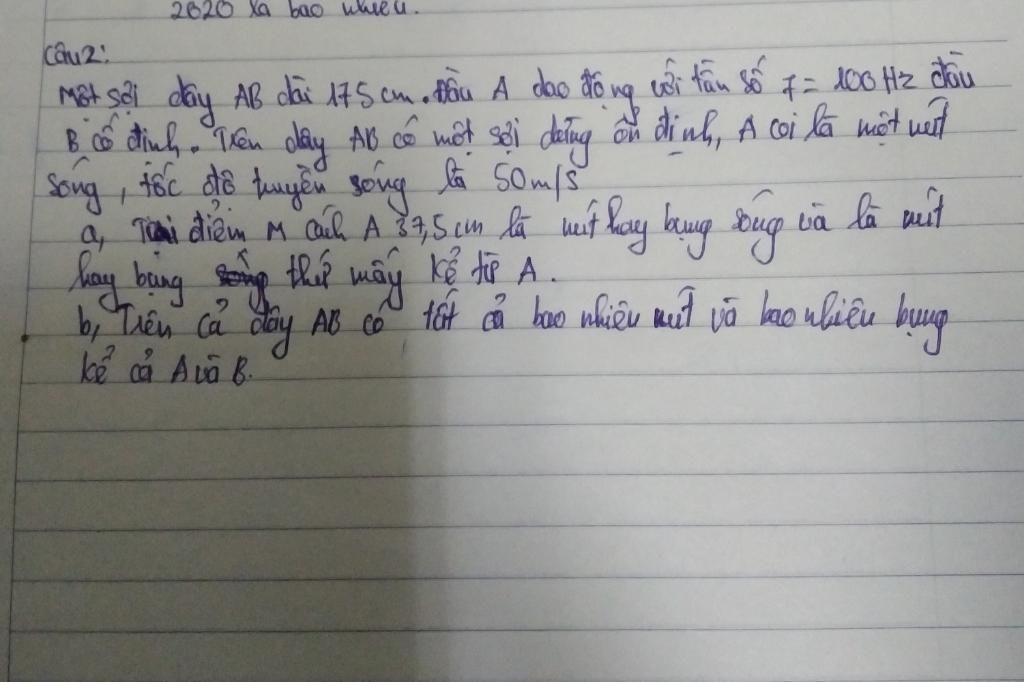 2020 là bao nhiêu.
Câu 2:
Một sợi dây AB dài 175 cm. Đầu A dao động với tần số f = 100 Hz đầu
B cố định. Trên dây AB có một sợi dừng ổn định, A coi là một nút
sóng, tốc độ truyền sóng là 50m/s
a, Tại điểm M cách A 37,5 cm là nút hay bụng sóng và là nút
hay bụng thứ mấy kể từ A.
b, Trên cả dây AB có tất cả bao nhiêu nút và bao nhiêu bụng
kể cả A và B.